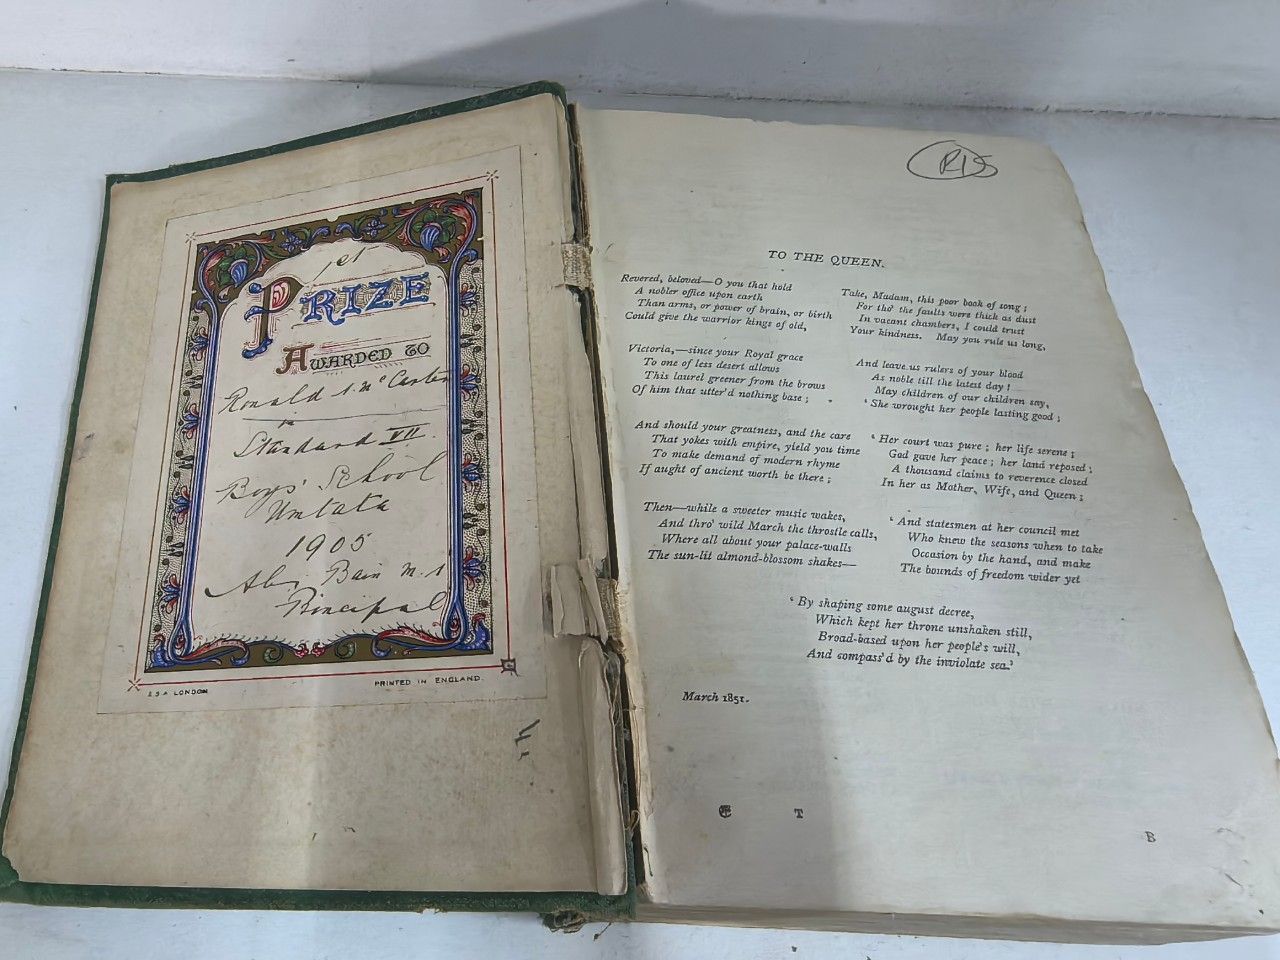 1st
PRIZE
AWARDED TO
Ronald
in
Standard VII.
Boys' School
Umtata
1905
Bain M.A
Principal
E.S.A LONDON.
PRINTED IN ENGLAND.
R15
TO THE QUEEN.
Revered, beloved—O you that hold
A nobler office upon earth
Than arms, or power of brain, or birth
Could give the warrior kings of old,
Victoria,—since your Royal grace
To one of less desert allows
This laurel greener from the brows
Of him that utter'd nothing base;
And should your greatness, and the care
That yokes with empire, yield you time
To make demand of modern rhyme
If aught of ancient worth be there;
Then—while a sweeter music wakes,
And thro' wild March the throstle calls,
Where all about your palace-walls
The sun-lit almond-blossom shakes—
Take, Madam, this poor book of song;
For tho' the faults were thick as dust
In vacant chambers, I could trust
Your kindness. May you rule us long,
And leave us rulers of your blood
As noble till the latest day!
May children of our children say,
'She wrought her people lasting good;
'Her court was pure; her life serene;
God gave her peace; her land reposed;
A thousand claims to reverence closed
In her as Mother, Wife, and Queen;
'And statesmen at her council met
Who knew the seasons when to take
Occasion by the hand, and make
The bounds of freedom wider yet
'By shaping some august decree,
Which kept her throne unshaken still,
Broad-based upon her people's will,
And compass'd by the inviolate sea.'
March 1851.
T
B